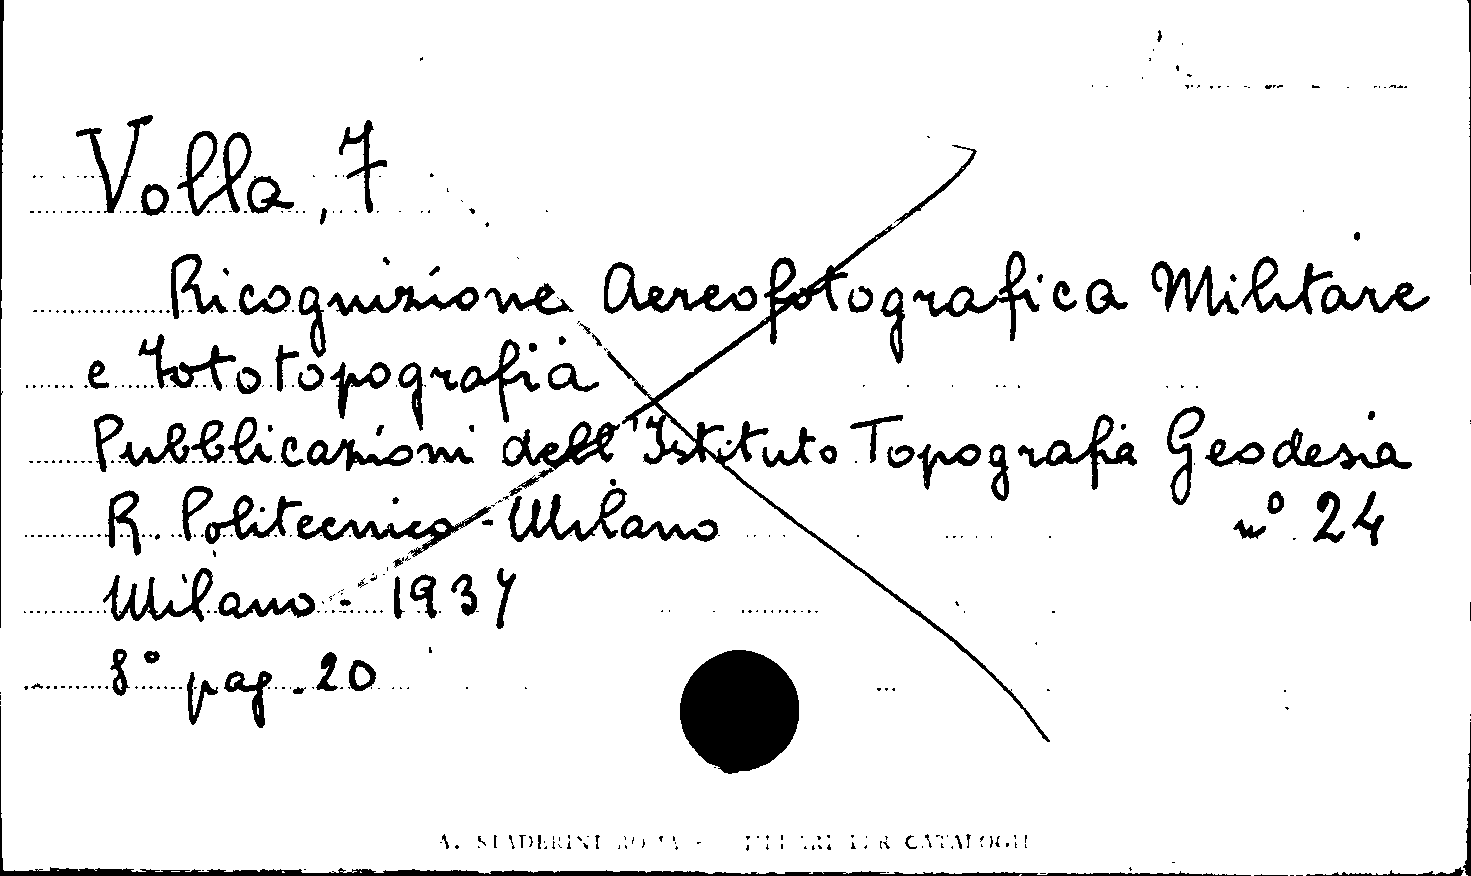 Volla, F
Ricognizione Aereofotografica Militare
e Fototopografia
Pubblicazioni dell'Istituto Topografia Geodesia
R. Politecnico - Milano n° 24
Milano - 1937
8° pag. 20
A. STADERINI ROMA - CATALOGHI